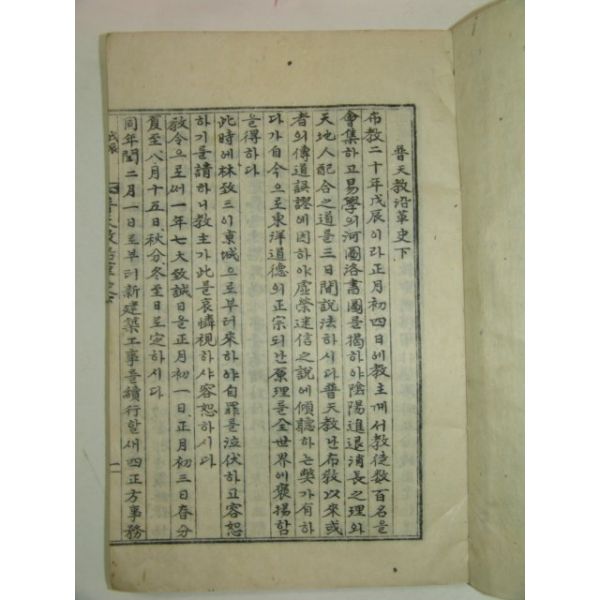 普天敎沿革史下
布敎二十年戊辰이라正月初四日에敎主께서敎徒數百名을
會集하고易學의河圖洛書圖를揭하야陰陽進退消長之理와
天地人配合之道를三日間說法하시다普天敎난布敎以來或
者의傳道誤謬에因하야虛榮迷信之說에傾聽하는獘가有하
다가自今으로東洋道德의正宗되난原理를全世界에襃揚함
을得하다
此時에林敎三이京城으로부터來하야自罪를泣伏하고容恕
하기를請하니敎主가此를哀憐視하샤容恕하시다
敎令으로써一年七大致誠日을正月初一日、正月初三日春分
夏至八月十五日、秋分、冬至日로定하시다
同年閏二月一日로부터新建築工事를續行할새四正方事務
戊辰
普天敎沿革史下
一